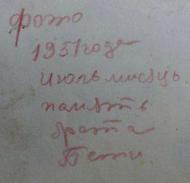 фото
1951 годе
Июль месяць.
память
брата
Пети